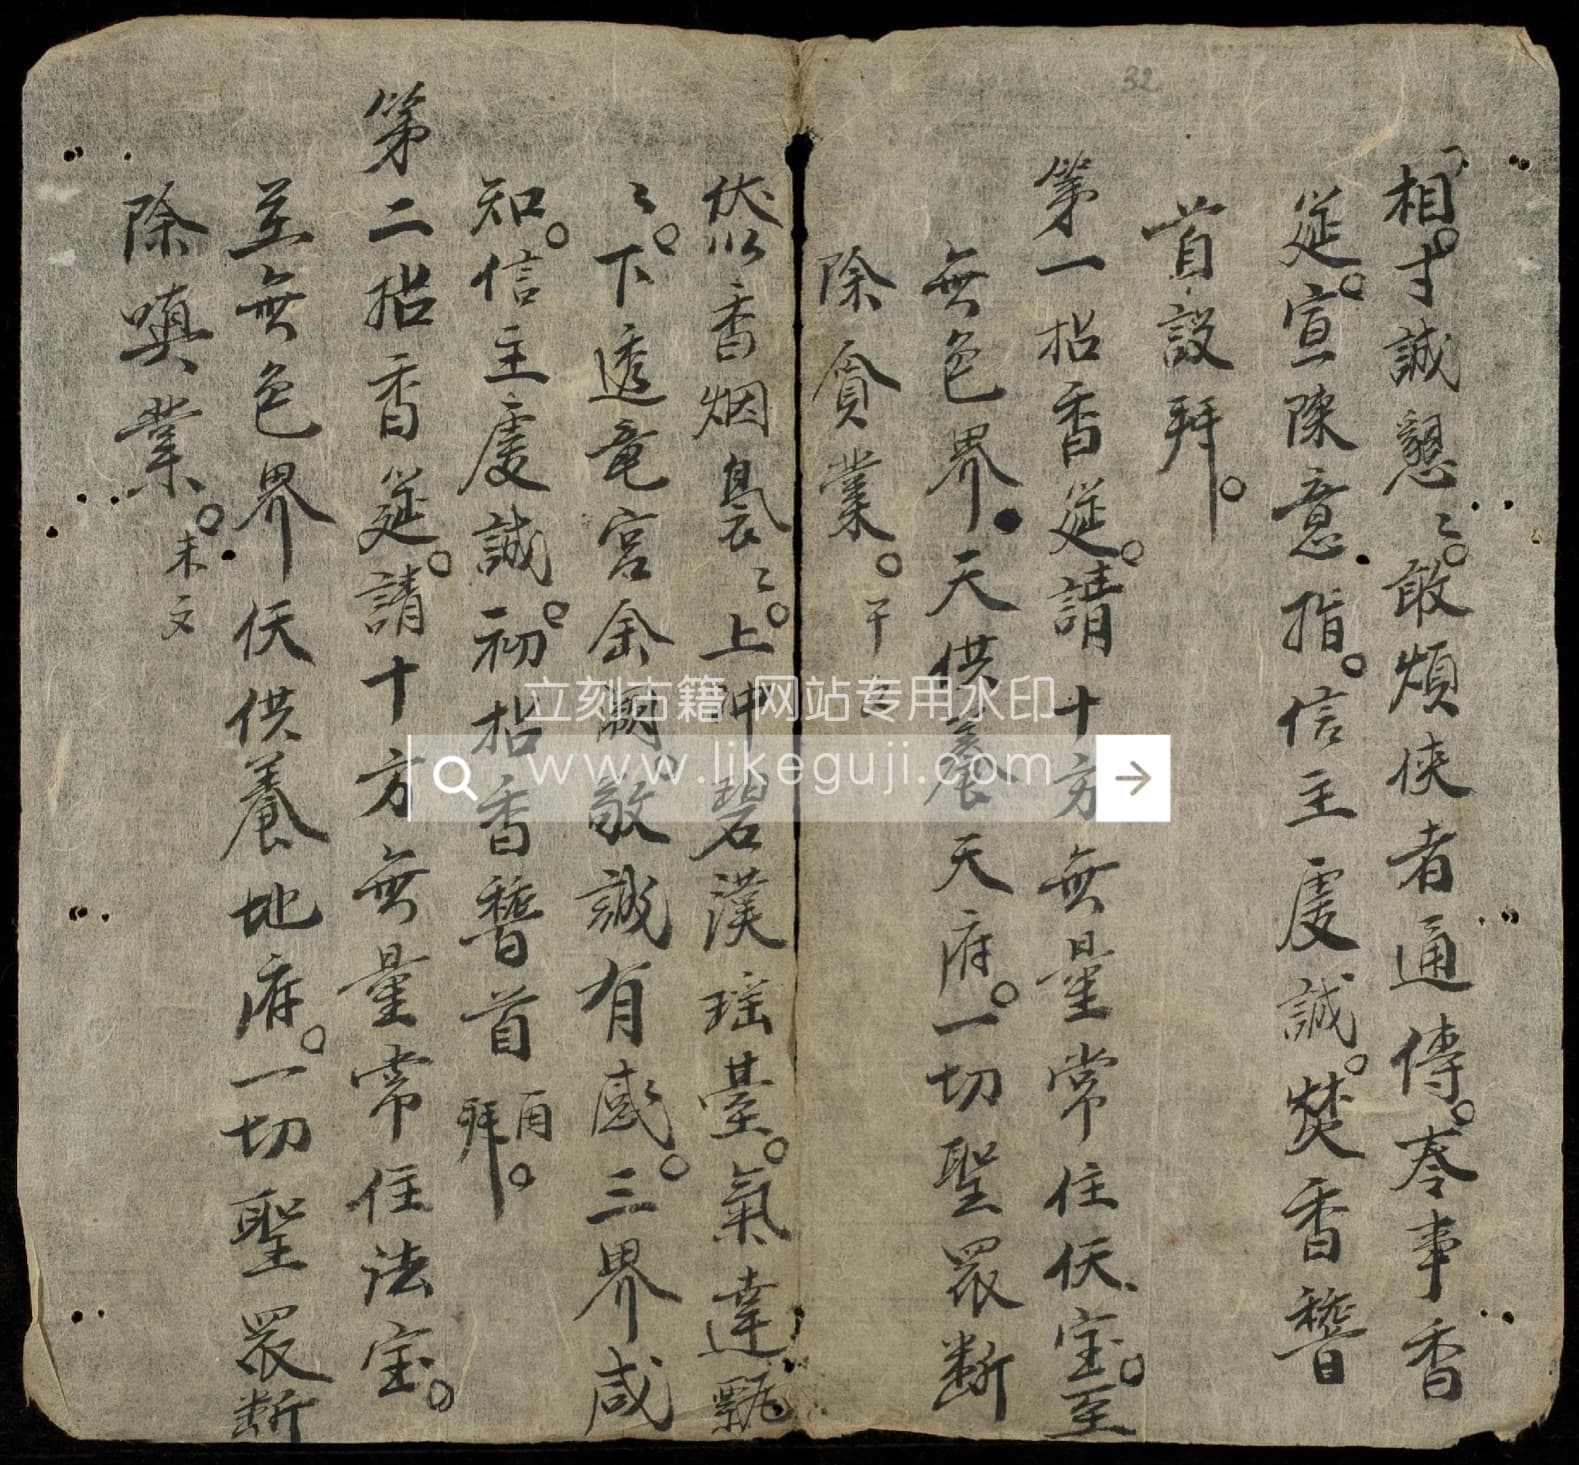 相。寸誠懇〻。敢煩侠者通傳。奉事香
筵。宣陳意指。信主虔誠。焚香稽
首設拜。
第一拈香筵。請十方無量常住仸宝。至
無色界。天供養天府。一切聖眾断
除貪業。
伏以香烟裊〻。上冲碧漢瑶臺。氣達
〻。下透竜宮金闕。敬誠有感。三界咸
知。信主虔誠。初拈香稽首
再拜。
第二拈香筵。請十方無量常住法宝。
至無色界仸供養地府。一切聖眾断
除嗔業。
32
立刻古籍 网站专用水印
www.likeguji.com